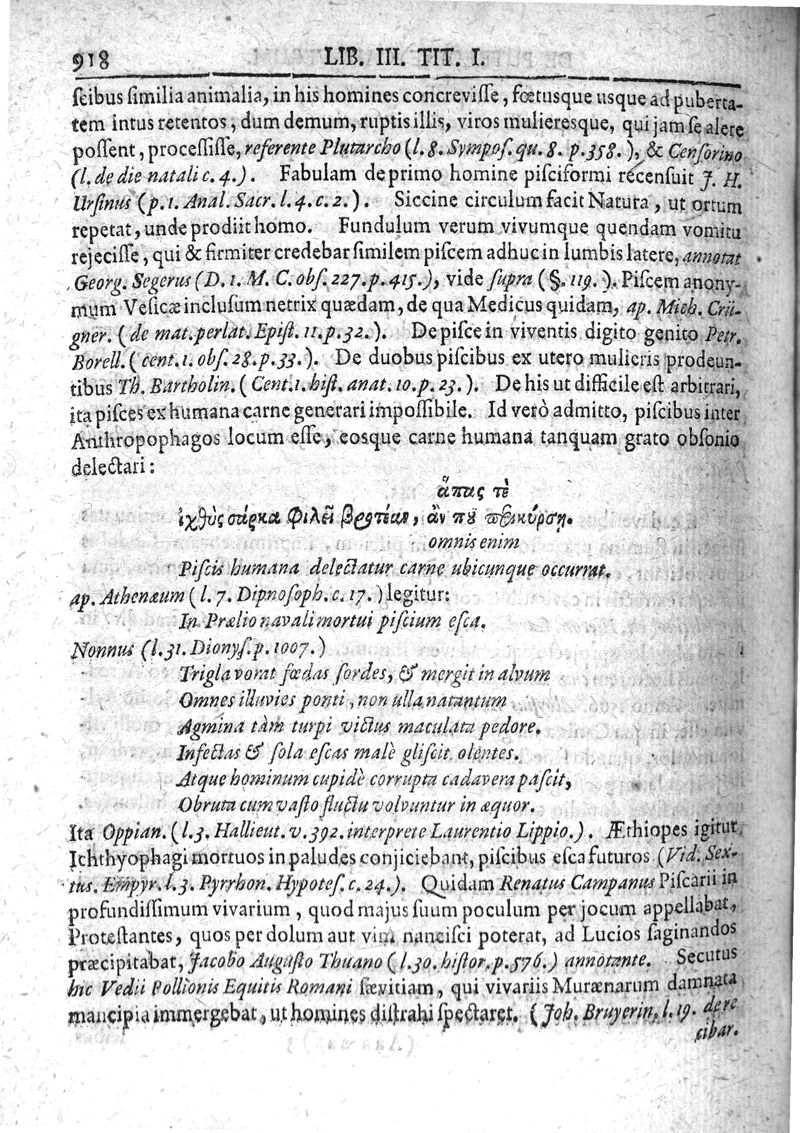 918 LIB. III. TIT. I.
ſcibus ſimilia animalia, in his homines concreviſſe, fœtusque usque ad puberta-
tem intus retentos, dum demum, ruptis illis, viros mulieresque, qui jam ſe alere
poſſent, proceſſiſſe, referente Plutarcho (l. 8. Sympoſ. qu. 8. p. 358.), & Cenſorino
(l. de die natali c. 4.). Fabulam de primo homine piſciformi recenſuit J. H.
Urſinus (p. 1. Anal. Sacr. l. 4. c. 2.). Siccine circulum facit Natura, ut ortum
repetat, unde prodiit homo. Fundulum verum vivumque quendam vomitu
rejeciſſe, qui & firmiter credebar ſimilem piſcem adhuc in lumbis latere, annotat
Georg. Segerus (D. 1. M. C. obſ. 227. p. 415.), vide ſupra (§. 119.). Piſcem anony-
mum Veſicæ incluſum netrix quædam, de qua Medicus quidam, ap. Mich. Crü-
gner. (de mat. perlat. Epiſt. 11. p. 32.). De piſce in viventis digito genito Petr.
Borell. (cent. 1. obſ. 28. p. 33.). De duobus piſcibus ex utero mulieris prodeun-
tibus Th. Bartholin. (Cent. 1. hiſt. anat. 10. p. 23.). De his ut difficile eſt arbitrari,
ita piſces ex humana carne generari impoſſibile. Id verò admitto, piſcibus inter
Anthropophagos locum eſſe, eosque carne humana tanquam grato obſonio
delectari:
ἅπας τὲ
ἰχθὺς σάρκα φιλεῖ βροτέαν, ἄν που ἐπικύρσῃ.
omnis enim
Piſcis humana delectatur carne ubicunque occurrat.
ap. Athenæum (l. 7. Dipnoſoph. c. 17.) legitur:
In Prælio navali mortui piſcium eſca.
Nonnus (l. 31. Dionyſ. p. 1007.)
Trigla vorat fœdas ſordes, & mergit in alvum
Omnes illuvies ponti, non ulla natantum
Agmina tàm turpi victus maculata pedore.
Infectas & ſola eſcas malè gliſcit olentes.
Atque hominum cupidè corrupta cadavera paſcit,
Obruta cum vaſto fluctu volvuntur in æquor.
Ita Oppian. (l. 3. Hallieut. v. 392. interprete Laurentio Lippio.). Æthiopes igitur
Ichthyophagi mortuos in paludes conjiciebant, piſcibus eſca futuros (Vid. Sex-
tus. Empyr. l. 3. Pyrrhon. Hypoteſ. c. 24.). Quidam Renatus Campanus Piſcarii in
profundiſſimum vivarium, quod majus ſuum poculum per jocum appellabat,
Proteſtantes, quos per dolum aut vim nanciſci poterat, ad Lucios ſaginandos
præcipitabat, Jacobo Auguſto Thuano (l. 30. hiſtor. p. 576.) annotante. Secutus
hic Vedii Pollionis Equitis Romani ſævitiam, qui vivariis Murænarum damnata
mancipia immergebat, ut homines diſtrahi ſpectaret. (Joh. Bruyerin, l. 19. de re
cibar.